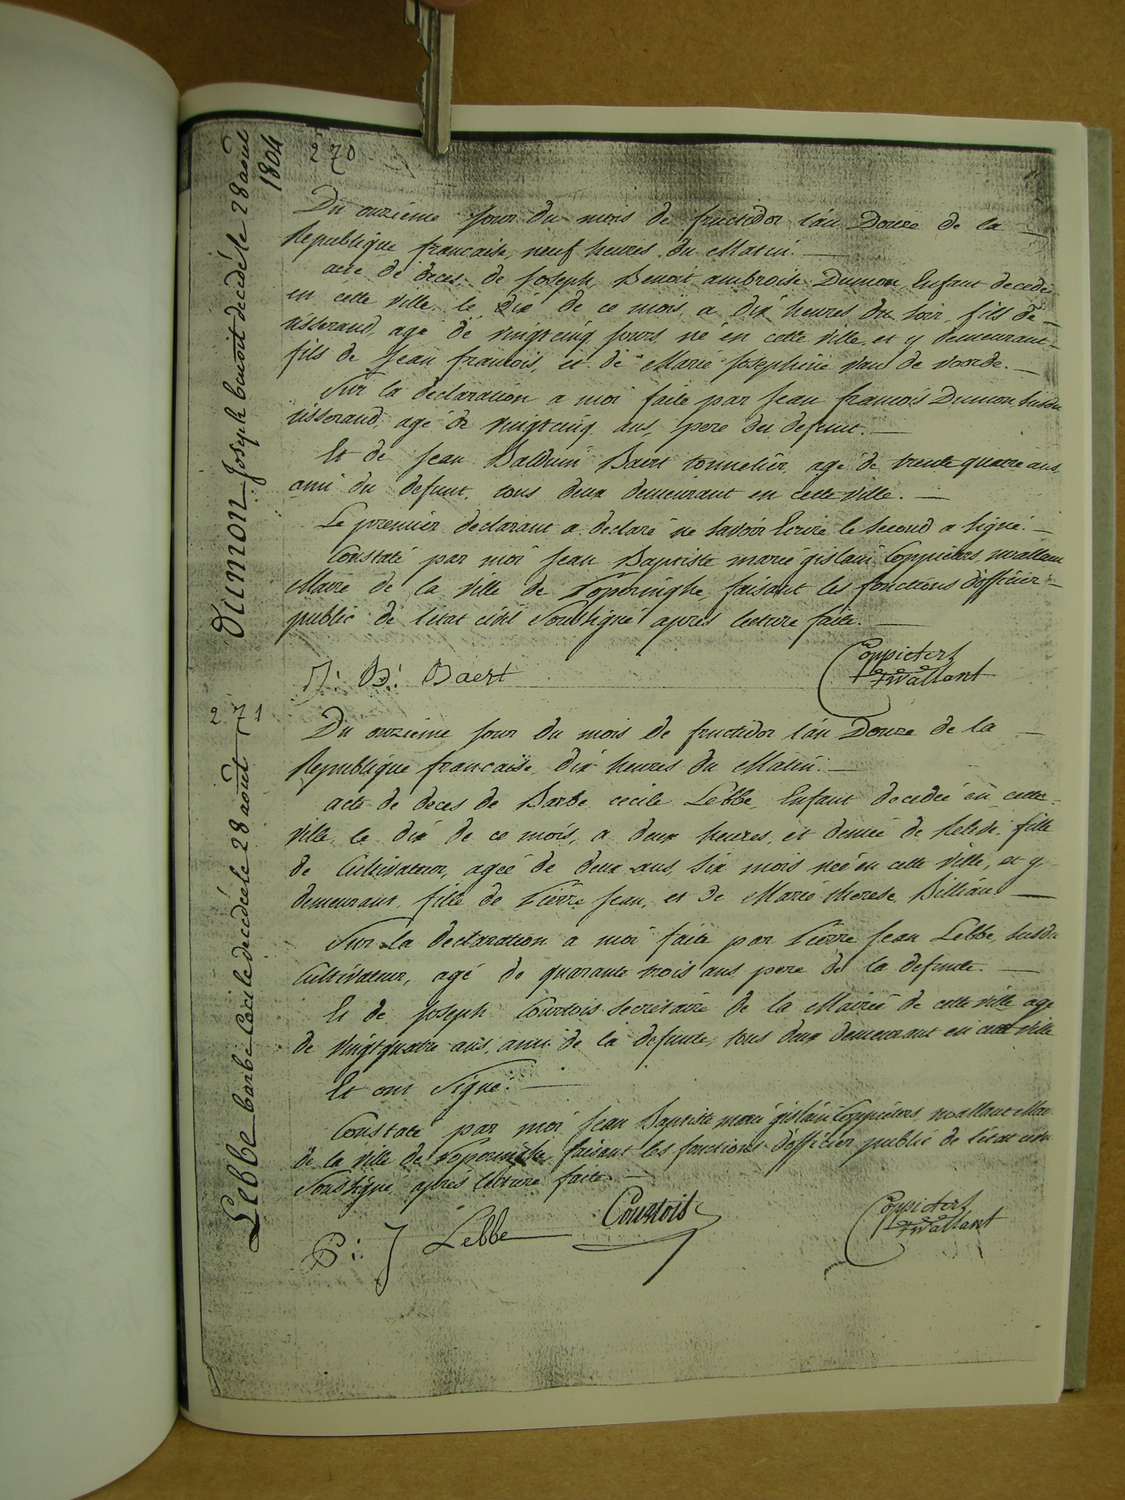 Dumon Joseph benoit decedé le 28 aout
1804
270
Du onzieme jour du mois de fructidor l'an Douze de la
Republique francaise, neuf heures du Matin.
acte de deces de Joseph Benoit ambroise Dumon, Enfant decedé
en cette ville, le dix de ce mois, a dix heures du soir, fils de
tisserand, agé de vingtcinq jours, né en cette ville, et y demeurant
fils de Jean francois, et de Marie Josephine van de voorde.
Sur la declaration a moi faite par Jean francois Dumon susdit
tisserand, agé de vingtcinq ans, pere du defunt.
Et de Jean Balduin Baert tonnelier, agé de trente quatre ans
ami du defunt, tous deux demeurant en cette ville.
Le premier declarant a declaré ne savoir Ecrire le second a signé.
Constaté par moi Jean Baptiste marie gislain Coppieters, wallant
Maire de la ville de Poperinghe, faisant les fonctions d'officier
public de l'etat civil Soussigné apres lecture faite.
J: B: Baert
Coppieters
tWallant
271
Lebbe barbe Cecile decedée le 28 aout
Du onzieme jour du mois de fructidor l'an Douze de la
Republique francaise, dix heures du Matin.
acte de deces de Barbe cecile Lebbe, Enfant decedée en cette
ville, le dix de ce mois, a deux heures, et demie de relevée, fille
de Cultivateur, agée de deux ans, six mois née en cette ville, et y
demeurant, fille de Pierre Jean, et de Marie therese Billiau
Sur la declaration a moi faite par Pierre Jean Lebbe, susdit
Cultivateur, agé de quarante trois ans pere de la defunte.
Et de Joseph Courtois secretaire de la Mairie de cette ville agé
de vingtquatre ans, ami de la defunte, tous deux demeurant en cette ville
Et ont Signé.
Constaté par moi Jean Baptiste marie gislain Coppieters, wallant Maire
de la ville de Poperinghe, faisant les fonctions d'officier public de l'etat civil
Soussigné, après lecture faite.
P: J Lebbe
Courtois
Coppieters
tWallant